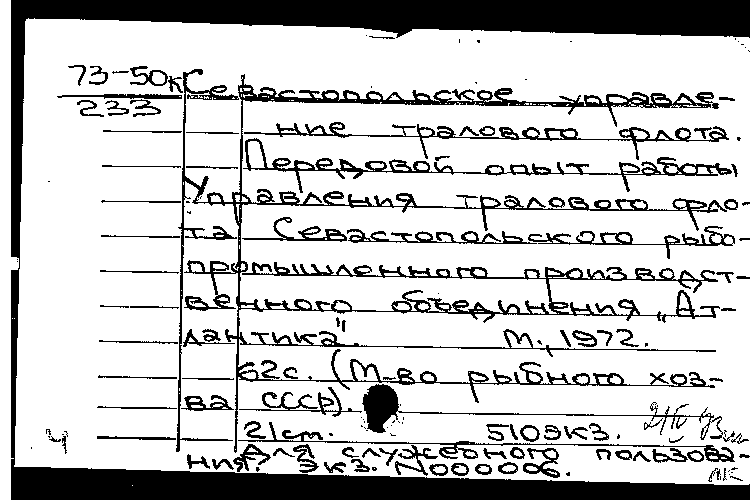 73-50к Севастопольское управле-
233
ние тралового флота.
Передовой опыт работы
Управления тралового фло-
та Севастопольского рыбо-
промышленного производст-
венного объединения „Ат-
лантика". М., 1972.
62с. (М-во рыбного хоз-
ва СССР).
21см. 510экз.
Для служебного пользова-
ния. Экз. N000006.
4